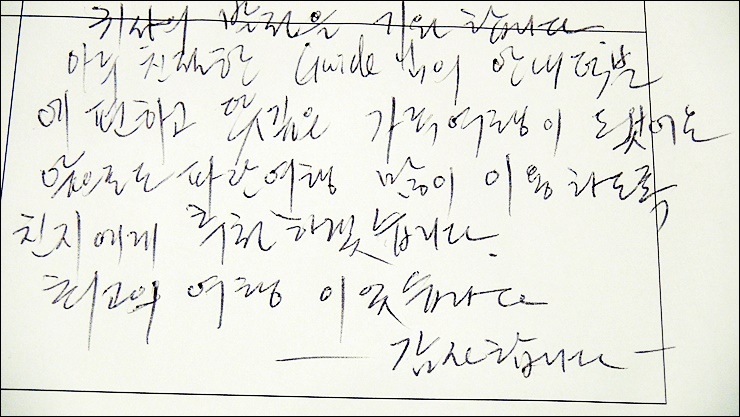 귀사의 발전을 기원 합니다
아주 친절한 Guide 님의 안내 덕분
에 편하고 뜻깊은 가족여행이 되었어요
앞으로도 파란여행 많이 이용하도록
친지에게 추천 하겠습니다.
최고의 여행 이었습니다
감사합니다